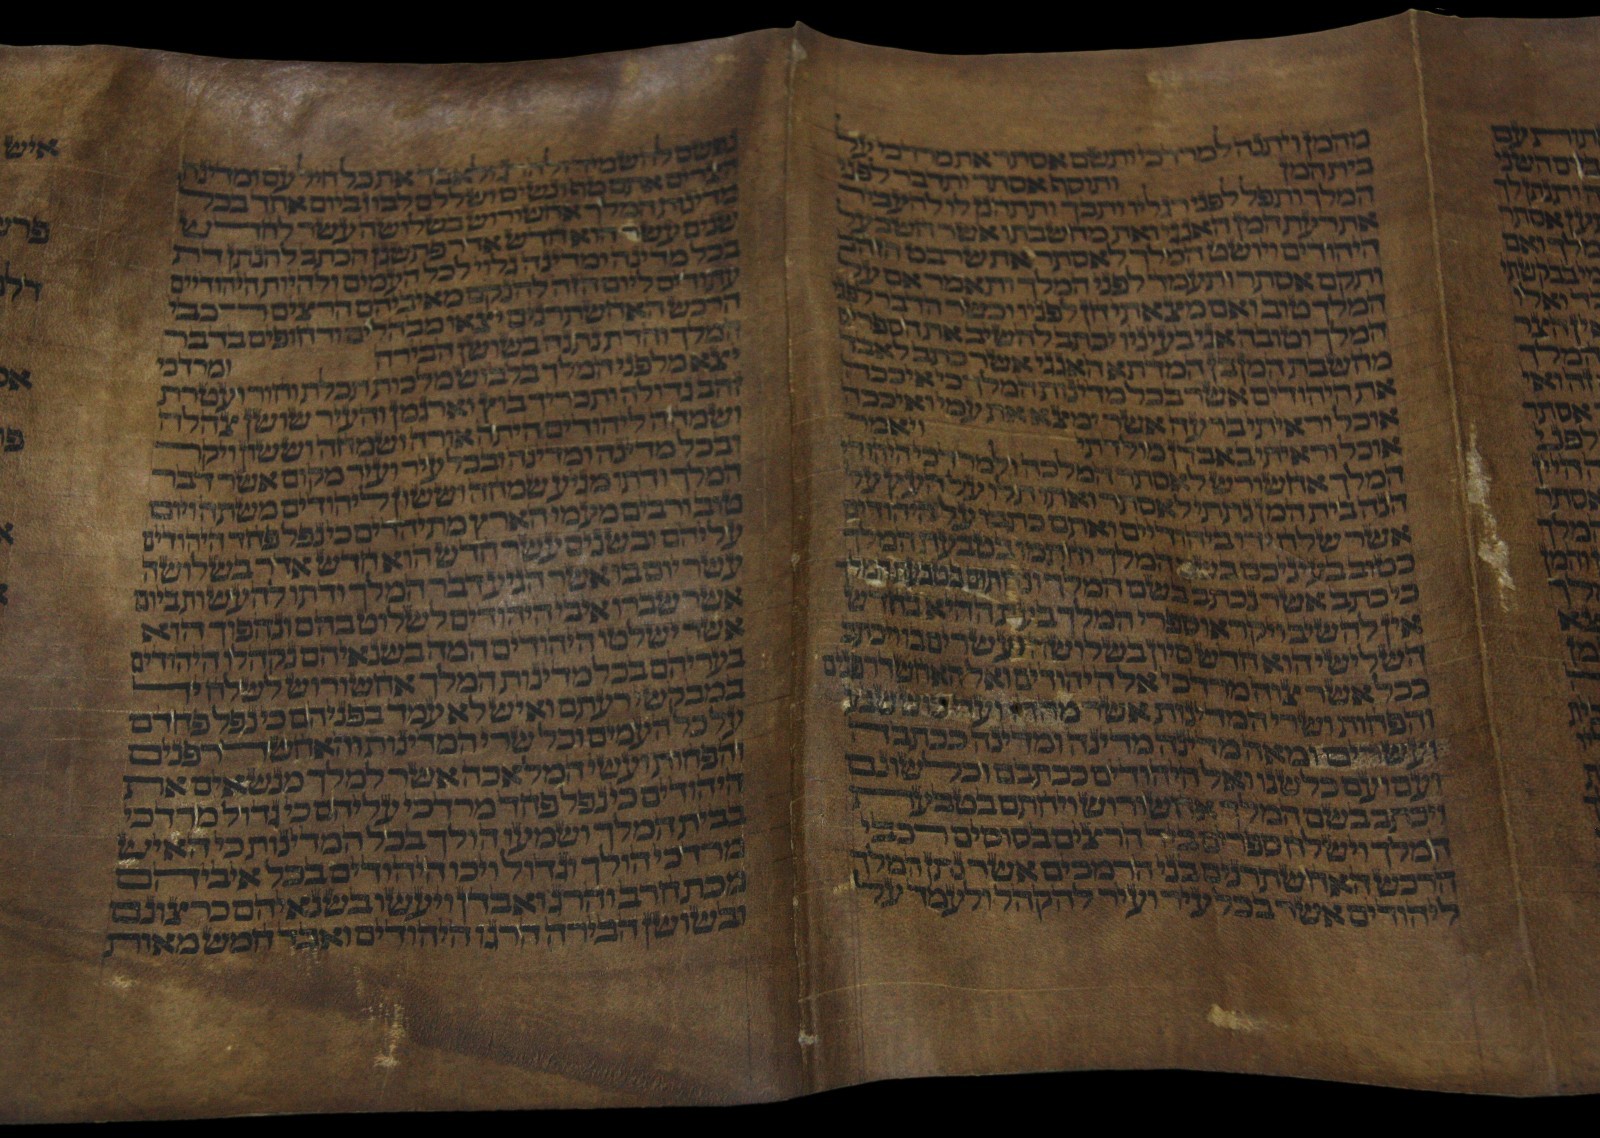 תות עם
המלך ואם
אסתר
המלך
מהמן ויתנה למרדכי ותשם אסתר את מרדכי על
בית המן ותוסף אסתר ותדבר לפני
המלך ותפל לפני רגליו ותבך ותתחנן לו להעביר
את רעת המן האגגי ואת מחשבתו אשר חשב על
היהודים ויושט המלך לאסתר את שרבט הזהב
ותקם אסתר ותעמד לפני המלך ותאמר אם על
המלך טוב ואם מצאתי חן לפניו וכשר הדבר לפני
המלך וטובה אני בעיניו יכתב להשיב את הספרים
מחשבת המן בן המדתא האגגי אשר כתב לאבד
את היהודים אשר בכל מדינות המלך כי איככה
אוכל וראיתי ברעה אשר ימצא את עמי ואיככה
אוכל וראיתי באבדן מולדתי ויאמר
המלך אחשורוש לאסתר המלכה ולמרדכי היהודי
הנה בית המן נתתי לאסתר ואתו תלו על העץ על
אשר שלח ידו ביהודיים ואתם כתבו על היהודים
כטוב בעיניכם בשם המלך וחתמו בטבעת המלך
כי כתב אשר נכתב בשם המלך ונחתום בטבעת המלך
אין להשיב ויקראו ספרי המלך בעת ההיא בחדש
השלישי הוא חדש סיון בשלושה ועשרים בו ויכתב
ככל אשר צוה מרדכי אל היהודים ואל האחשדרפנים
והפחות ושרי המדינות אשר מהדו ועד כוש שבע
ועשרים ומאה מדינה מדינה ומדינה ככתבה
ועם ועם כלשנו ואל היהודים ככתבם וכלשונם
ויכתב בשם המלך אחשורוש ויחתם בטבעת
המלך וישלח ספרים ביד הרצים בסוסים רכבי
הרכש האחשתרנים בני הרמכים אשר נתן המלך
ליהודים אשר בכל עיר ועיר להקהל ולעמד על
נפשם להשמיד להרג ולאבד את כל חיל עם ומדינה
הצרים אתם טף ונשים ושללם לבוז ביום אחד בכל
מדינות המלך אחשורוש בשלושה עשר לחדש
שנים עשר הוא חדש אדר פתשגן הכתב להנתן דת
בכל מדינה ומדינה גלוי לכל העמים ולהיות היהודיים
עתודים ליום הזה להנקם מאיביהם הרצים רכבי
הרכש האחשתרנים יצאו מבהלים ודחופים בדבר
המלך והדת נתנה בשושן הבירה ומרדכי
יצא מלפני המלך בלבוש מלכות תכלת וחור ועטרת
זהב גדולה ותכריך בוץ וארגמן והעיר שושן צהלה
ושמחה ליהודים היתה אורה ושמחה וששון ויקר
ובכל מדינה ומדינה ובכל עיר ועיר מקום אשר דבר
המלך ודתו מגיע שמחה וששון ליהודים משתה ויום
טוב ורבים מעמי הארץ מתיהדים כי נפל פחד היהודים
עליהם ובשנים עשר חדש הוא חדש אדר בשלושה
עשר יום בו אשר הגיע דבר המלך ודתו להעשות ביום
אשר שברו איבי היהודים לשלוט בהם ונהפוך הוא
אשר ישלטו היהודים המה בשנאיהם נקהלו היהודים
בעריהם בכל מדינות המלך אחשורוש לשלח יד
במבקשי רעתם ואיש לא עמד בפניהם כי נפל פחדם
על כל העמים וכל שרי המדינות והאחשדרפנים
והפחות ועשי המלאכה אשר למלך מנשאים את
היהודים כי נפל פחד מרדכי עליהם כי גדול מרדכי
בבית המלך ושמעו הולך בכל המדינות כי האיש
מרדכי הולך וגדול ויכו היהודים בכל איביהם
מכת חרב והרג ואבדן ויעשו בשנאיהם כרצונם
ובשושן הבירה הרגו היהודים ואבד חמש מאות
איש